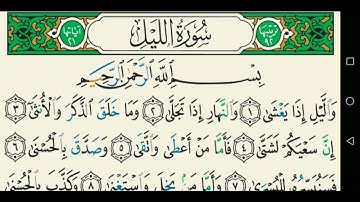 ترتيبها ٩٢ سُورَةُ اللَّيْلِ آياتها ٢١
بِسْمِ اللَّهِ الرَّحْمَٰنِ الرَّحِيمِ
وَاللَّيْلِ إِذَا يَغْشَىٰ ١ وَالنَّهَارِ إِذَا تَجَلَّىٰ ٢ وَمَا خَلَقَ الذَّكَرَ وَالْأُنثَىٰ ٣
إِنَّ سَعْيَكُمْ لَشَتَّىٰ ٤ فَأَمَّا مَنْ أَعْطَىٰ وَاتَّقَىٰ ٥ وَصَدَّقَ بِالْحُسْنَىٰ ٦
فَسَنُيَسِّرُهُ لِلْيُسْرَىٰ ٧ وَأَمَّا مَن بَخِلَ وَاسْتَغْنَىٰ ٨ وَكَذَّبَ بِالْحُسْنَىٰ